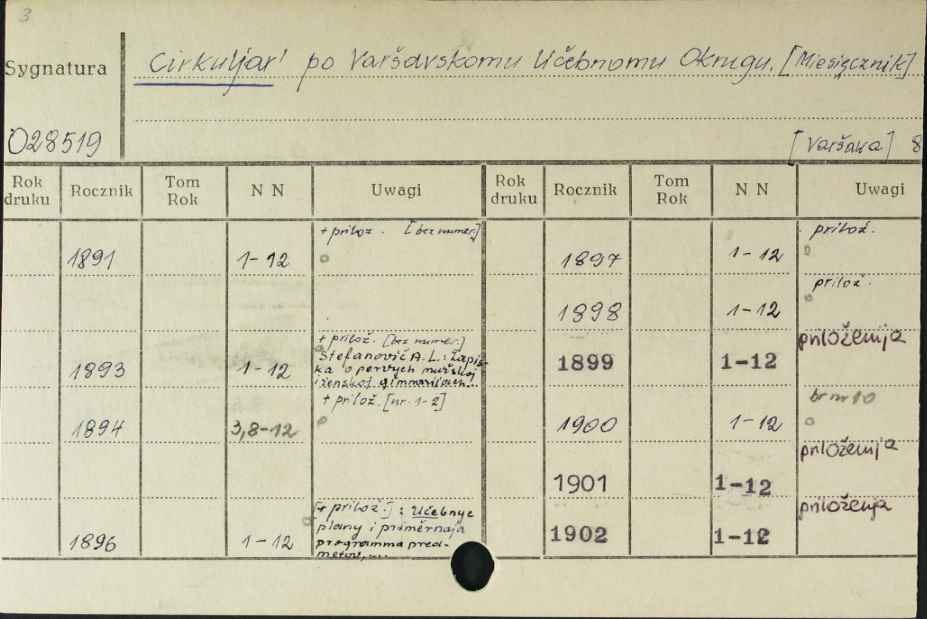 3
Sygnatura
Cirkuljar' po Varšavskomu Učebnomu Okrugu. [Miesięcznik]
028519
[Varšava] 8
Rok druku Rocznik Tom Rok N N Uwagi Rok druku Rocznik Tom Rok N N Uwagi
1891 1-12 + prilož. [bez numer.]
1893 1-12 + prilož. [bez numer.]
Stefanovič A. L.: Zapis-
ka o pervych mužskoj
i ženskoj
1894 3,8-12 + prilož. [nr. 1-2]
1896 1-12 [+ prilož.]: Učebnye
plany i priměrnaja
programma pred-
metov, ...
1897 1-12 prilož.
1898 1-12 prilož.
1899 1-12 priloženija
1900 1-12 br nr 10
1901 1-12 priloženija
1902 1-12 priloženija